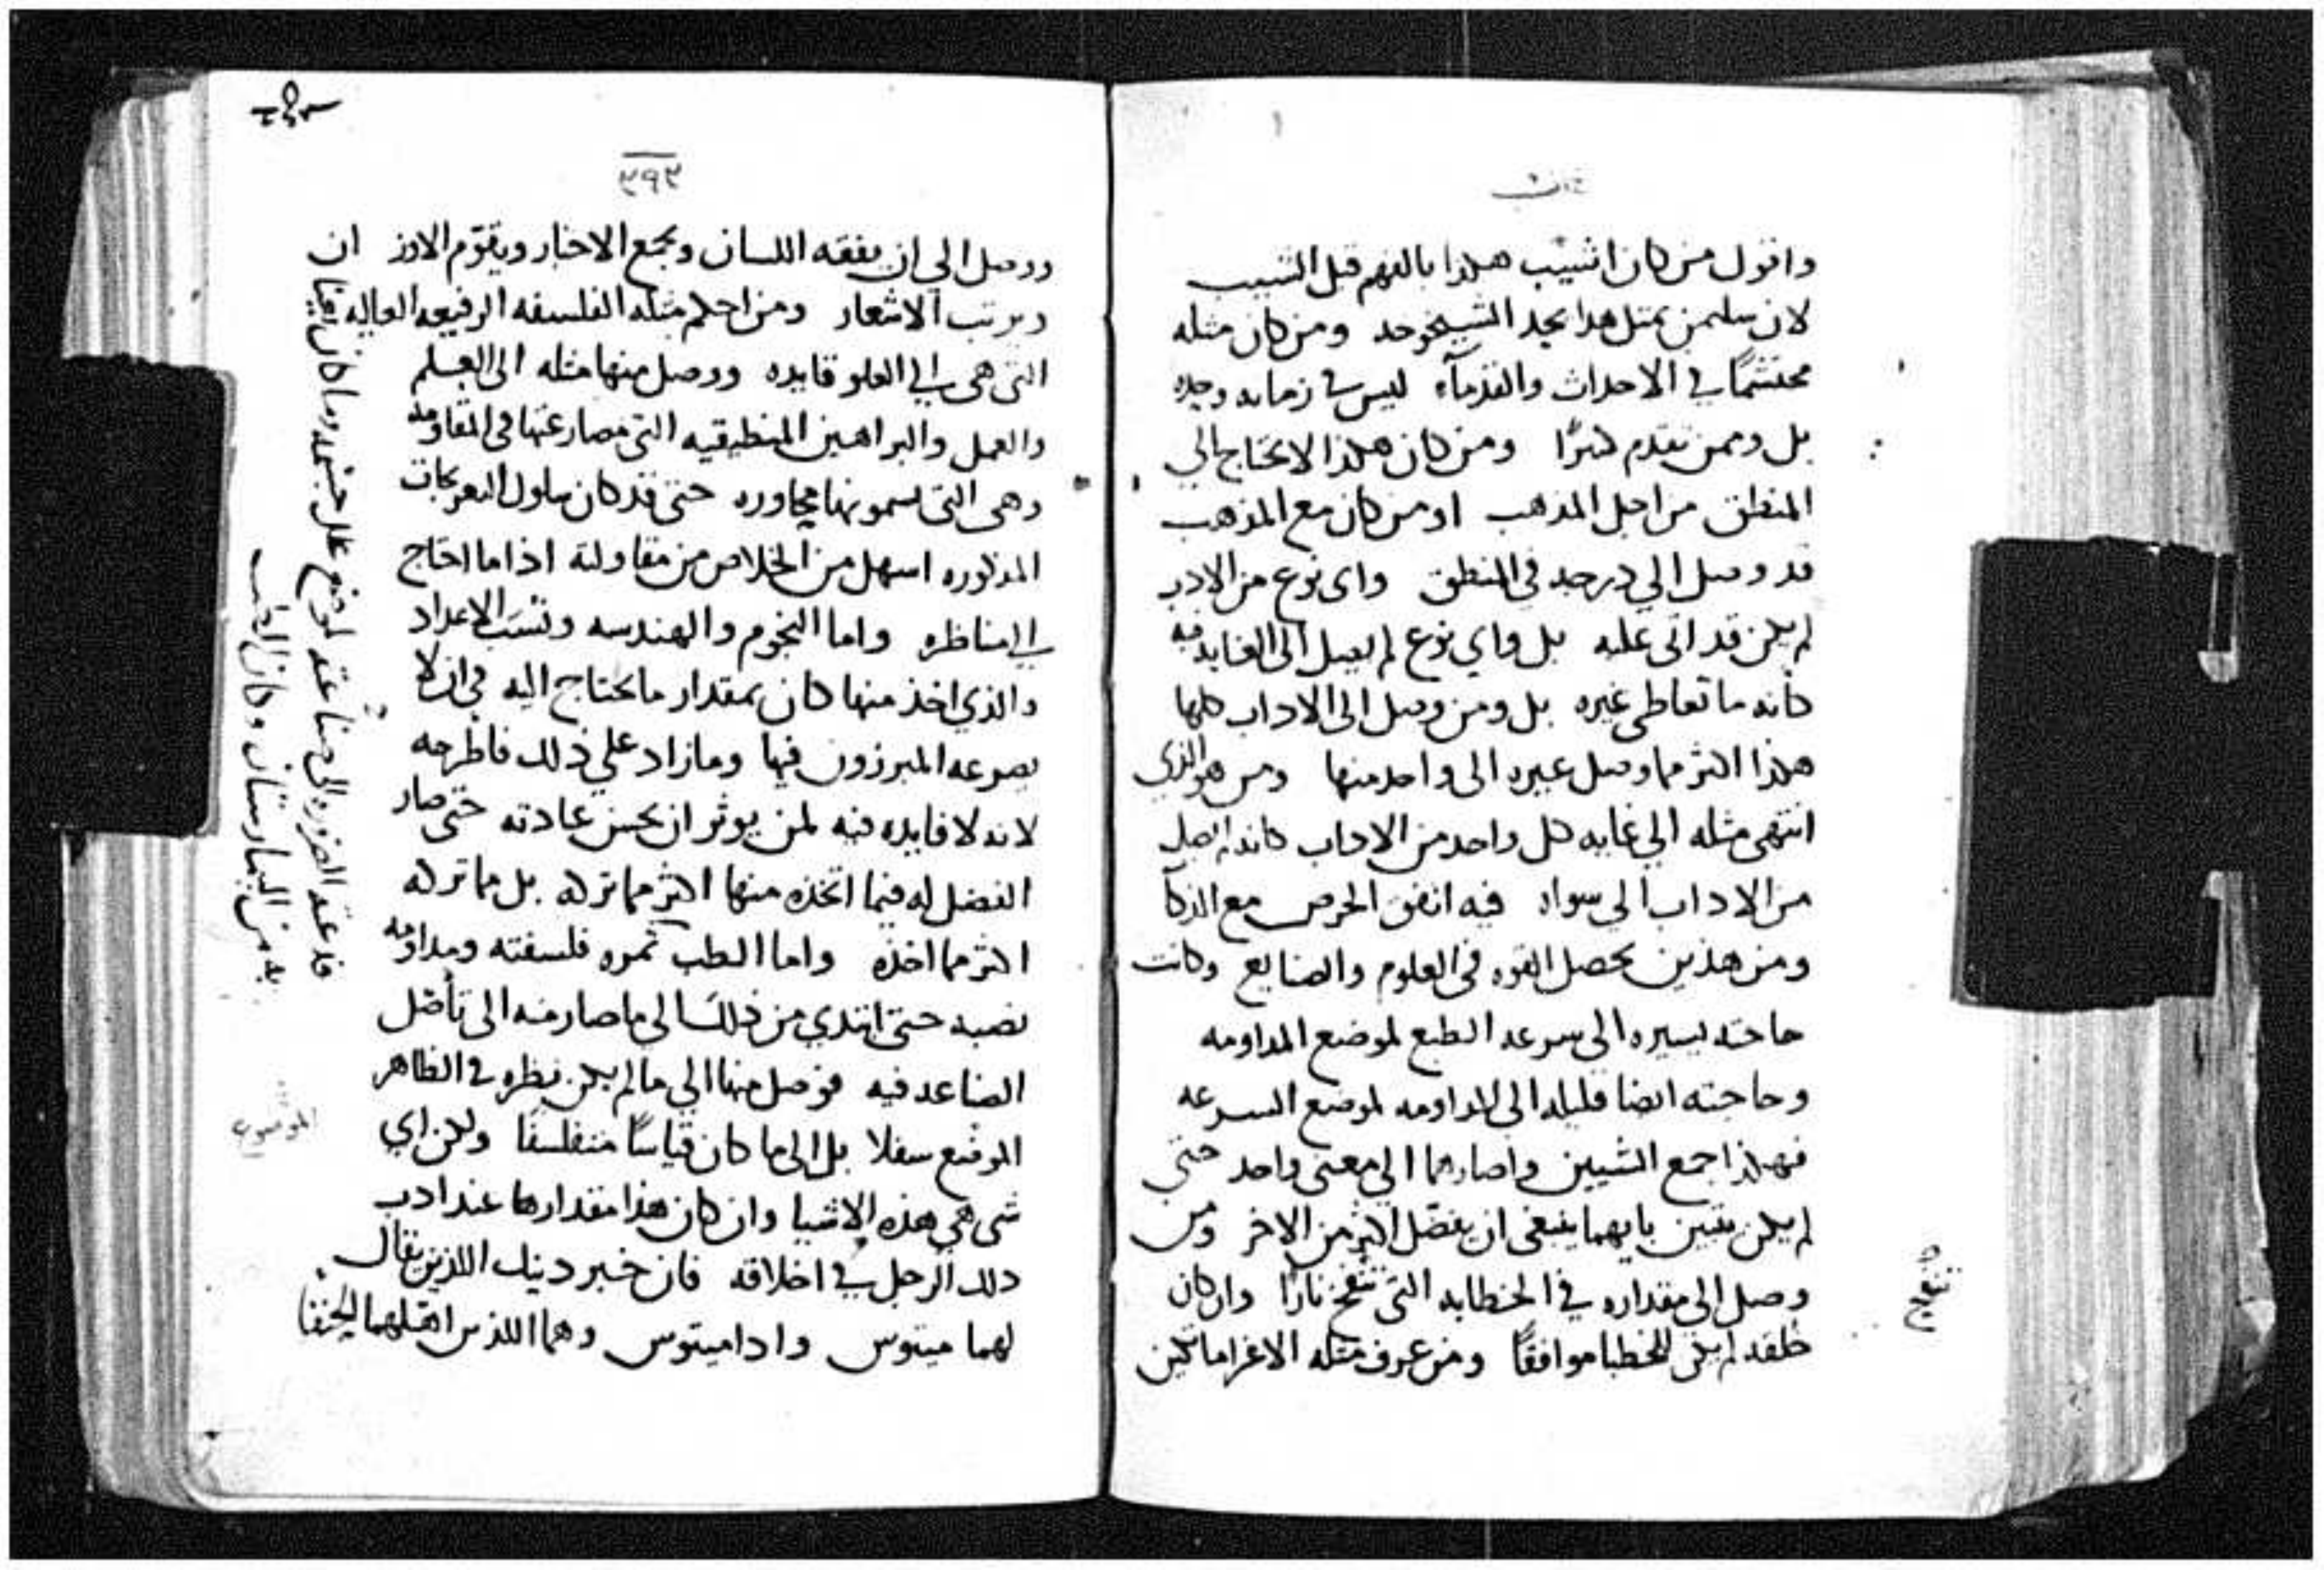 واقول من كان اشيب هكذا بالفهم قبل الشيب
لان سليمن بمثل هذا يحد الشيخوخه ومن كان مثله
محتشمًا في الاحداث والقدمآء ليس في زمانه وحده
بل وممن تقدم كثرًا ومن كان هكذا لا يحتاج الي
المنطق من اجل المذهب او من كان مع المذهب
قد وصل الي درجه في المنطق واى نوع من الادب
لم يكن قد اتى عليه بل واي نوع لم يصل الى الغايه فيه
كانه ما تعاطى غيره بل ومن وصل الى الاداب كلها
هكذا اكثر مما وصل غيره الى واحد منها ومن هو الذي
انتهى مثله الي غايه كل واحد من الاداب كانه لم يصل
من الاداب الي سواه فيه اتفق الحرص مع الذكا
ومن هذين يحصل القوه في العلوم والصنايع وكانت
حاجته يسيره الى سرعه الطبع لموضع المداومه
وحاجته ايضا قليله الى المداومه لموضع السرعه
فهكذا جمع الشيين واصارهما الي معنى واحد حتى
لم يكن يتبين بايهما ينبغى ان يفضل اكثر من الاخر ومن
وصل الى مقداره في الخطابه التى تنفخ نارًا وان كان
خلقه لم يكن للخطبا موافقًا ومن عرف مثله الاغراماطين
٣٩٣
ووصل الي ان يفقه اللسان ويجمع الاخبار ويقوّم الاوزان
ويرتب الاشعار ومن احكم مثله الفلسفه الرفيعه العاليه
التى هى في العلو فايده ووصل منها مثله الى العلم
والعمل والبراهين المنطيقيه التى مصارعتها في المقاومه
وهى التى يسمونها مجاوره حتى قد كان سلوك التعريجات
المذكوره اسهل من الخلاص من مقاولته اذا ما احتاج
الي المناظره واما النجوم والهندسه ونسَب الاعداد
والذي اخذ منها كان بمقدار ما يحتاج اليه في ان لا
يصرعه المبرزون فيها وما زاد علي ذلك فاطرحه
لانه لا فايده فيه لمن يوثر ان يحسن عبادته حتى صار
الفضل له فيما اتخذه منها اكثر مما تركه بل مما تركه
اكثر مما اخذه واما الطب ثمره فلسفته ومداومه
نصبه حتى ابتدي من ذلك الي ما صار منه الى تأصّل
الصناعه فيه فوصل منها الي ما لم يكن نظره في الظاهر
الموضع سفلا بل الى ما كان قياسًا متفلسفًا ولكن اي
شى هي هذه الاشيا وان كان هذا مقدارها عند ادب
ذلك الرجل في اخلاقه فان خبر ذينك اللذين يقال
لهما مينوس واداميتوس وهما اللذين اهلهما الحنفا
قد عته الضروره الى صناعته لموضع علل جسمه وما كان يعتنا
به من البيمارستان وكان الطب